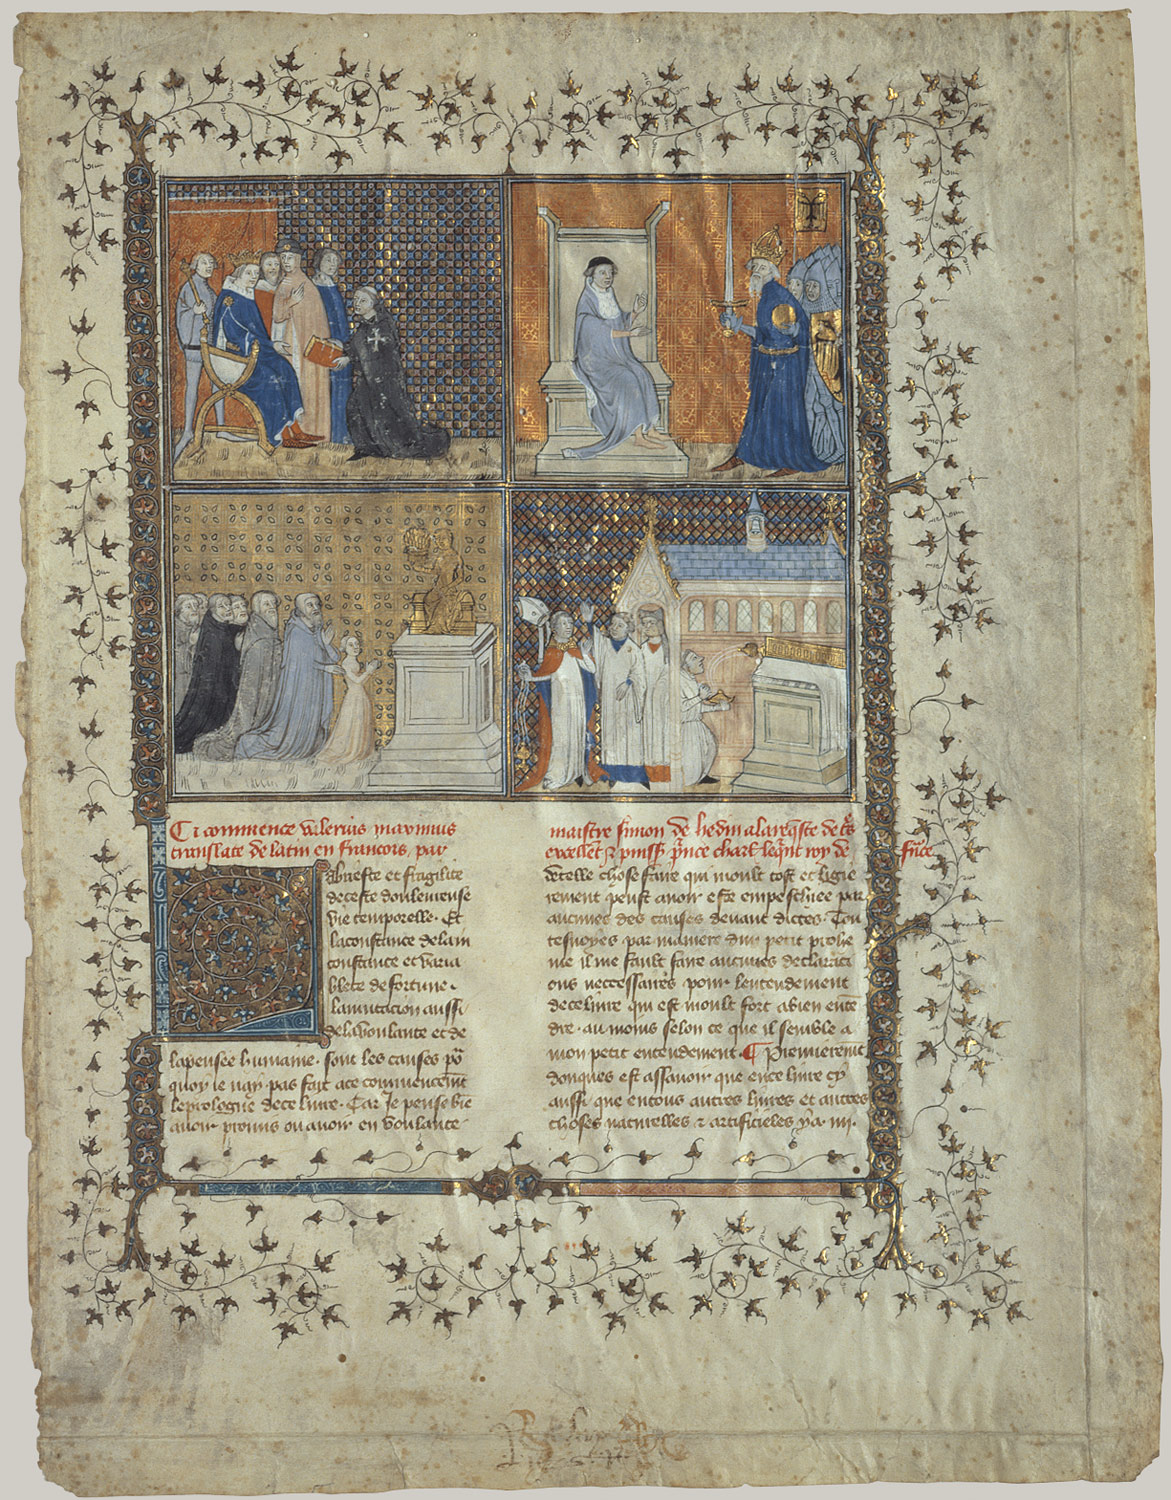 Ci commence Valerius maximus
translate de latin en francois, par
maistre simon de hedin a la reqste de
excellent prince charles le quint roy de france
La briefte et fragilite
de ceste douleureuse
vie temporelle. Et
la constance de la in
constance et varia
blete de fortune.
la mutacion aussi
de la voulante et de
la pensee humaine. sont les causes po
quoy ie nay pas fait a ce commencemt
le prologue de ce liure. Car ie pense bie
auoir promis ou auoir en voulante
de telle chose faire qui moult tost et ligie
rement peust auoir este empeschiee par
aucunes des causes deuant dictes. Tou
tesuoyes par maniere dun petit prohe
me il me fault faire aucunes declaraci
ons neccessaires pour lentendement
de ce liure qui est moult fort a bien ente
dre. au moins selon ce que il semble a
mon petit entendement. Premieremt
donques est assauoir que en ce liure cy
aussi que en tous autres liures et autres
choses naturelles & artificieles y a .iiii.